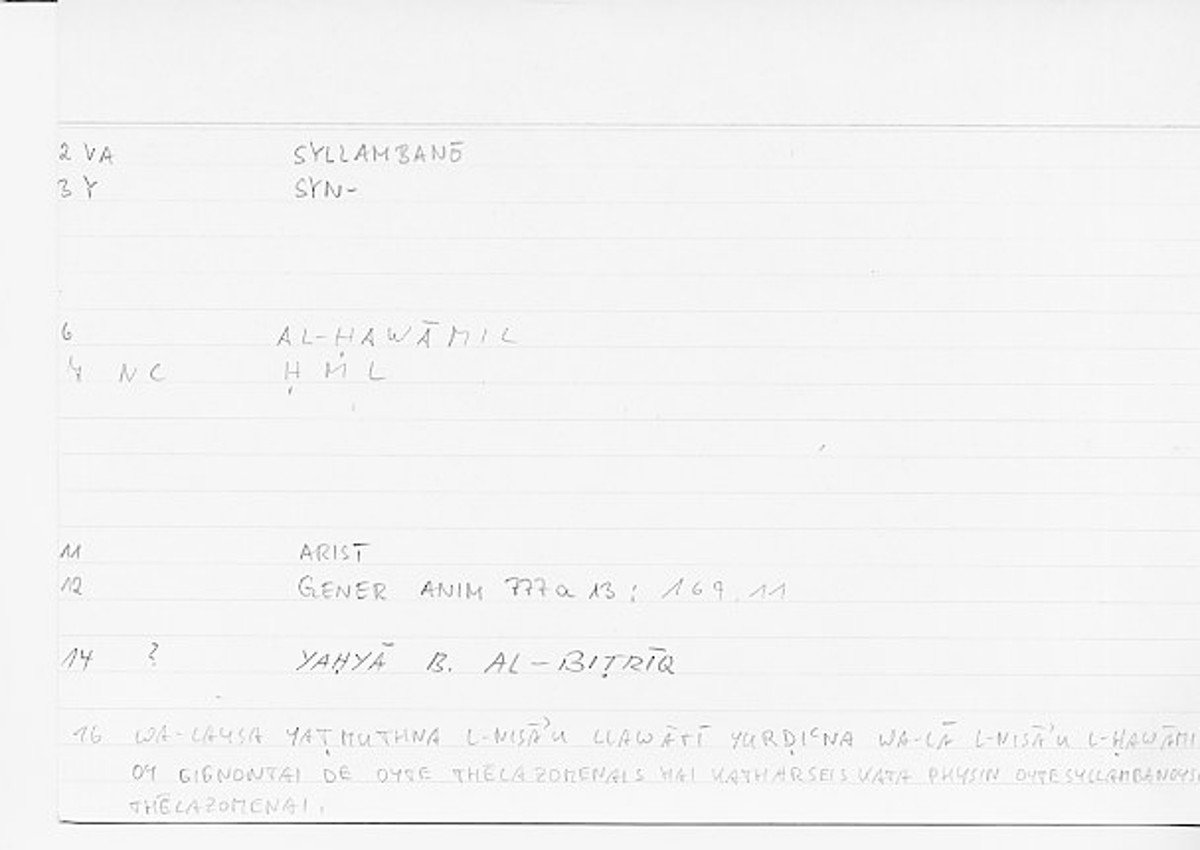 2 VA SYLLAMBANŌ
3 Y SYN-
6 AL-ḤAWĀMIL
Y NC ḤML
11 ARIST
12 GENER ANIM 777a 13 ; 169.11
14 ? YAḤYĀ B. AL-BIṬRĪQ
16 WA-LAYSA YAṬMUTHNA L-NISĀʾU LLAWĀTĪ YURḌIʿNA WA-LĀ L-NISĀʾU L-ḤAWĀMI
OY GIGNONTAI DE OYTE THĒLAZOMENAIS HAI KATHARSEIS KATA PHYSIN OYTE SYLLAMBANOYS
THĒLAZOMENAI.